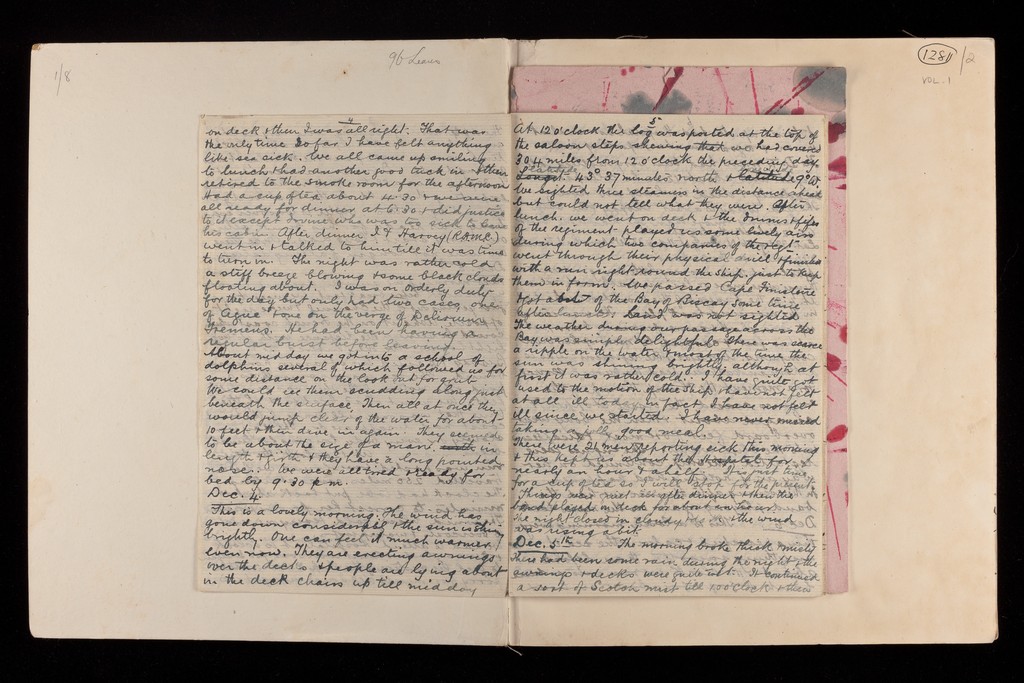 1/8
96 Leaves
128
/2
VOL. 1
4
on deck & then I was all right. That was
the only time so far I have felt anything
like sea sick. We all came up smiling
to lunch & had another good tuck in & then
retired to the smoke room for the afternoon
Had a cup of tea about 4.30 & we were
all ready for dinner at 6.30 & did justice
to it except Irvine who was too sick to leave
his cabin. After dinner I & Harvey (R.A.M.C.)
went in & talked to him till it was time
to turn in. The night was rather cold
a stiff breeze blowing & some black clouds
floating about. I was on orderly duty
for the day but only had two cases, one
of Ague & one on the verge of Delirium
Tremens. He had been having a
regular burst before leaving.
About mid day we got into a school of
dolphins several of which followed us for
some distance on the look out for grub
We could see them scudding along just
beneath the surface, then all at once they
would jump clear of the water for about
10 feet & then dive in again. They seemed
to be about the size of a man in
length & girth & they have a long pointed
nose. We were all tired & ready for
bed by 9.30 p.m.
Dec. 4.
This is a lovely morning. The wind has
gone down considerable & the sun is shining
brightly. One can feel it much warmer
even now. They are erecting awnings
over the decks & people are lying about
in the deck chairs up till mid day
5
At 12 o'clock the log was posted at the top of
the saloon steps shewing that we had covered
304 miles from 12 o'clock the preceding day.
Latitude 43° 37 minutes north & latitude 9° W.
We sighted three steamers in the distance ahead
but could not tell what they were. After
lunch we went on deck & the drums & fifes
of the regiment played us some lively airs
during which two companies of the regt
went through their physical drill & finished
with a run right round the ship just to keep
them in form. We passed Cape Finisterre
& got out of the Bay of Biscay some time
after Land was not sighted
The weather during our passage across the
Bay was simply delightful there was scarce
a ripple on the water & most of the time the
sun was shining brightly, although at
first it was rather cold. I have quite got
used to the motion of the ship & have not felt
at all ill today in fact I have not felt
ill since we started. I have never missed
taking a jolly good meal.
There were 21 men reporting sick this morning
& this kept us about the Hospital for
nearly an hour & a half. It is just time
for a cup of tea so I will stop for the present.
Things were quiet until after dinner & then the
band played on deck for about an hour.
The night closed in cloudy & the wind
was rising a bit.
Dec. 5th The morning broke thick misty
There had been some rain during the night & the
awnings & decks were quite wet. It continued
a sort of Scotch mist till 10 o'clock & then